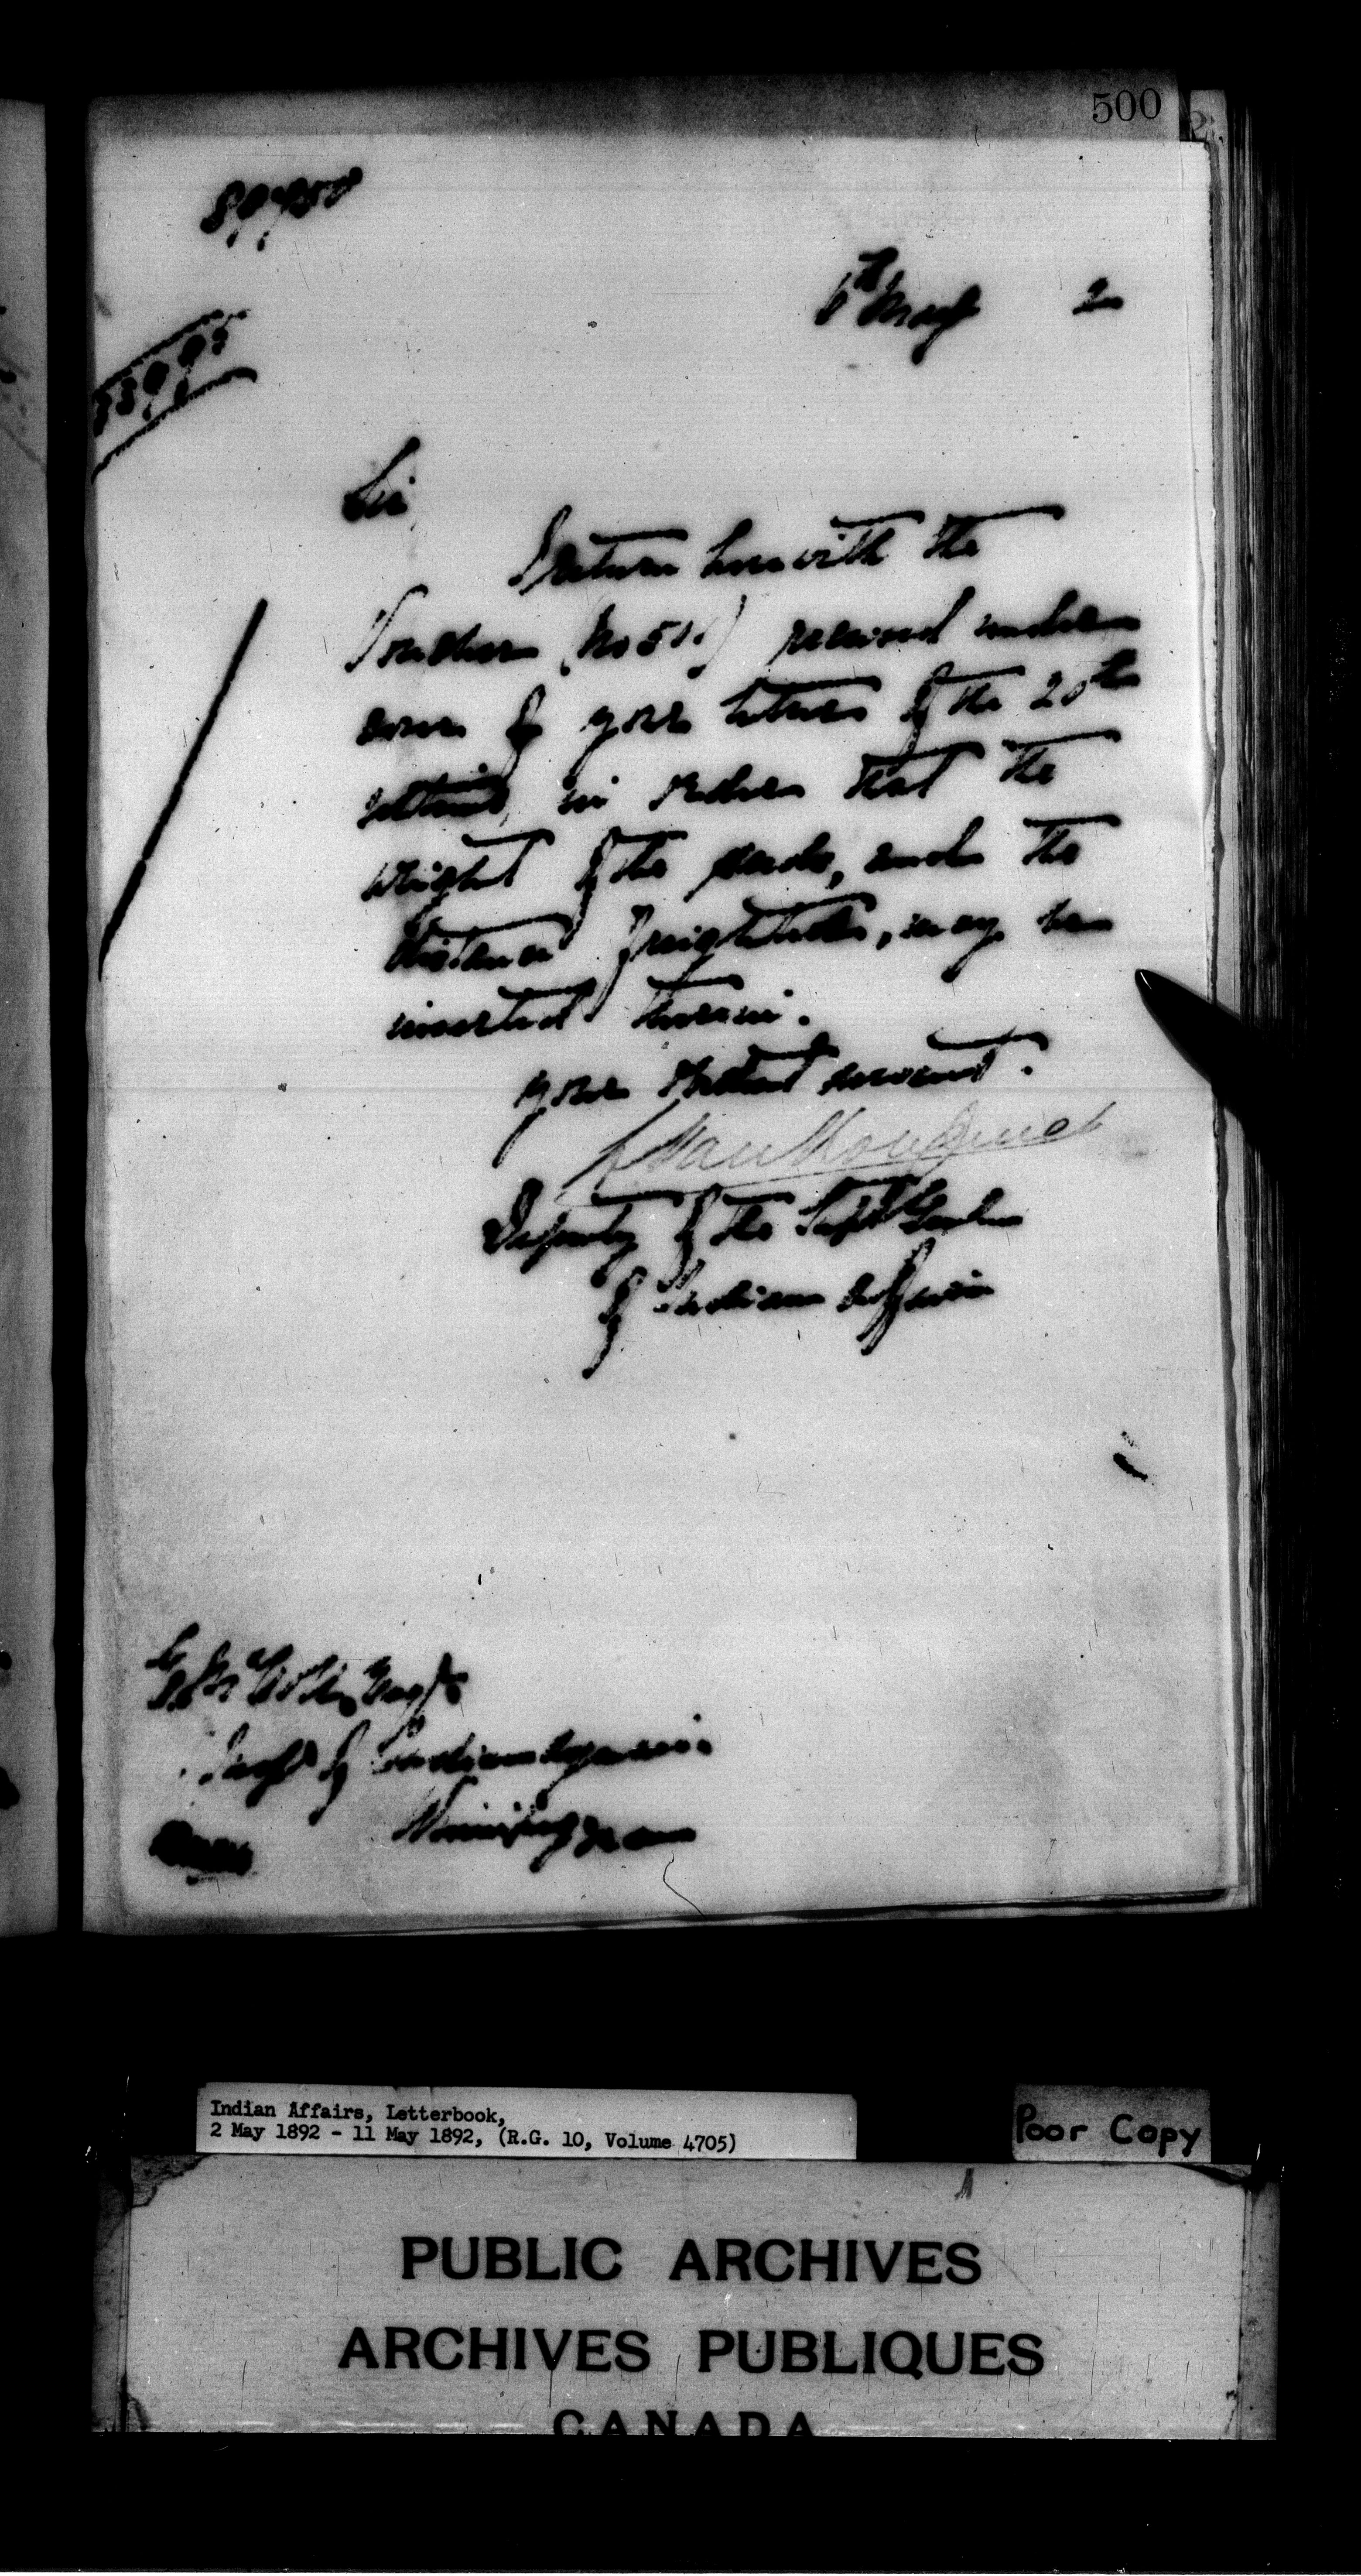 500
6th May 2
Sir
I return herewith the
Voucher (No 51.) received under
cover of your letter of the 20th
ultimo, in order that the
weight of the seeds, and the
distance freighted, may be
inserted therein.
Your obedient servant.
L Vankoughnet
Deputy of the Supt Genl
of Indian Affairs
E. McColl, Esqre
Supt of Indian Agencies
Winnipeg Man
Indian Affairs, Letterbook,
2 May 1892 - 11 May 1892, (R.G. 10, Volume 4705)
Poor Copy
PUBLIC ARCHIVES
ARCHIVES PUBLIQUES
CANADA